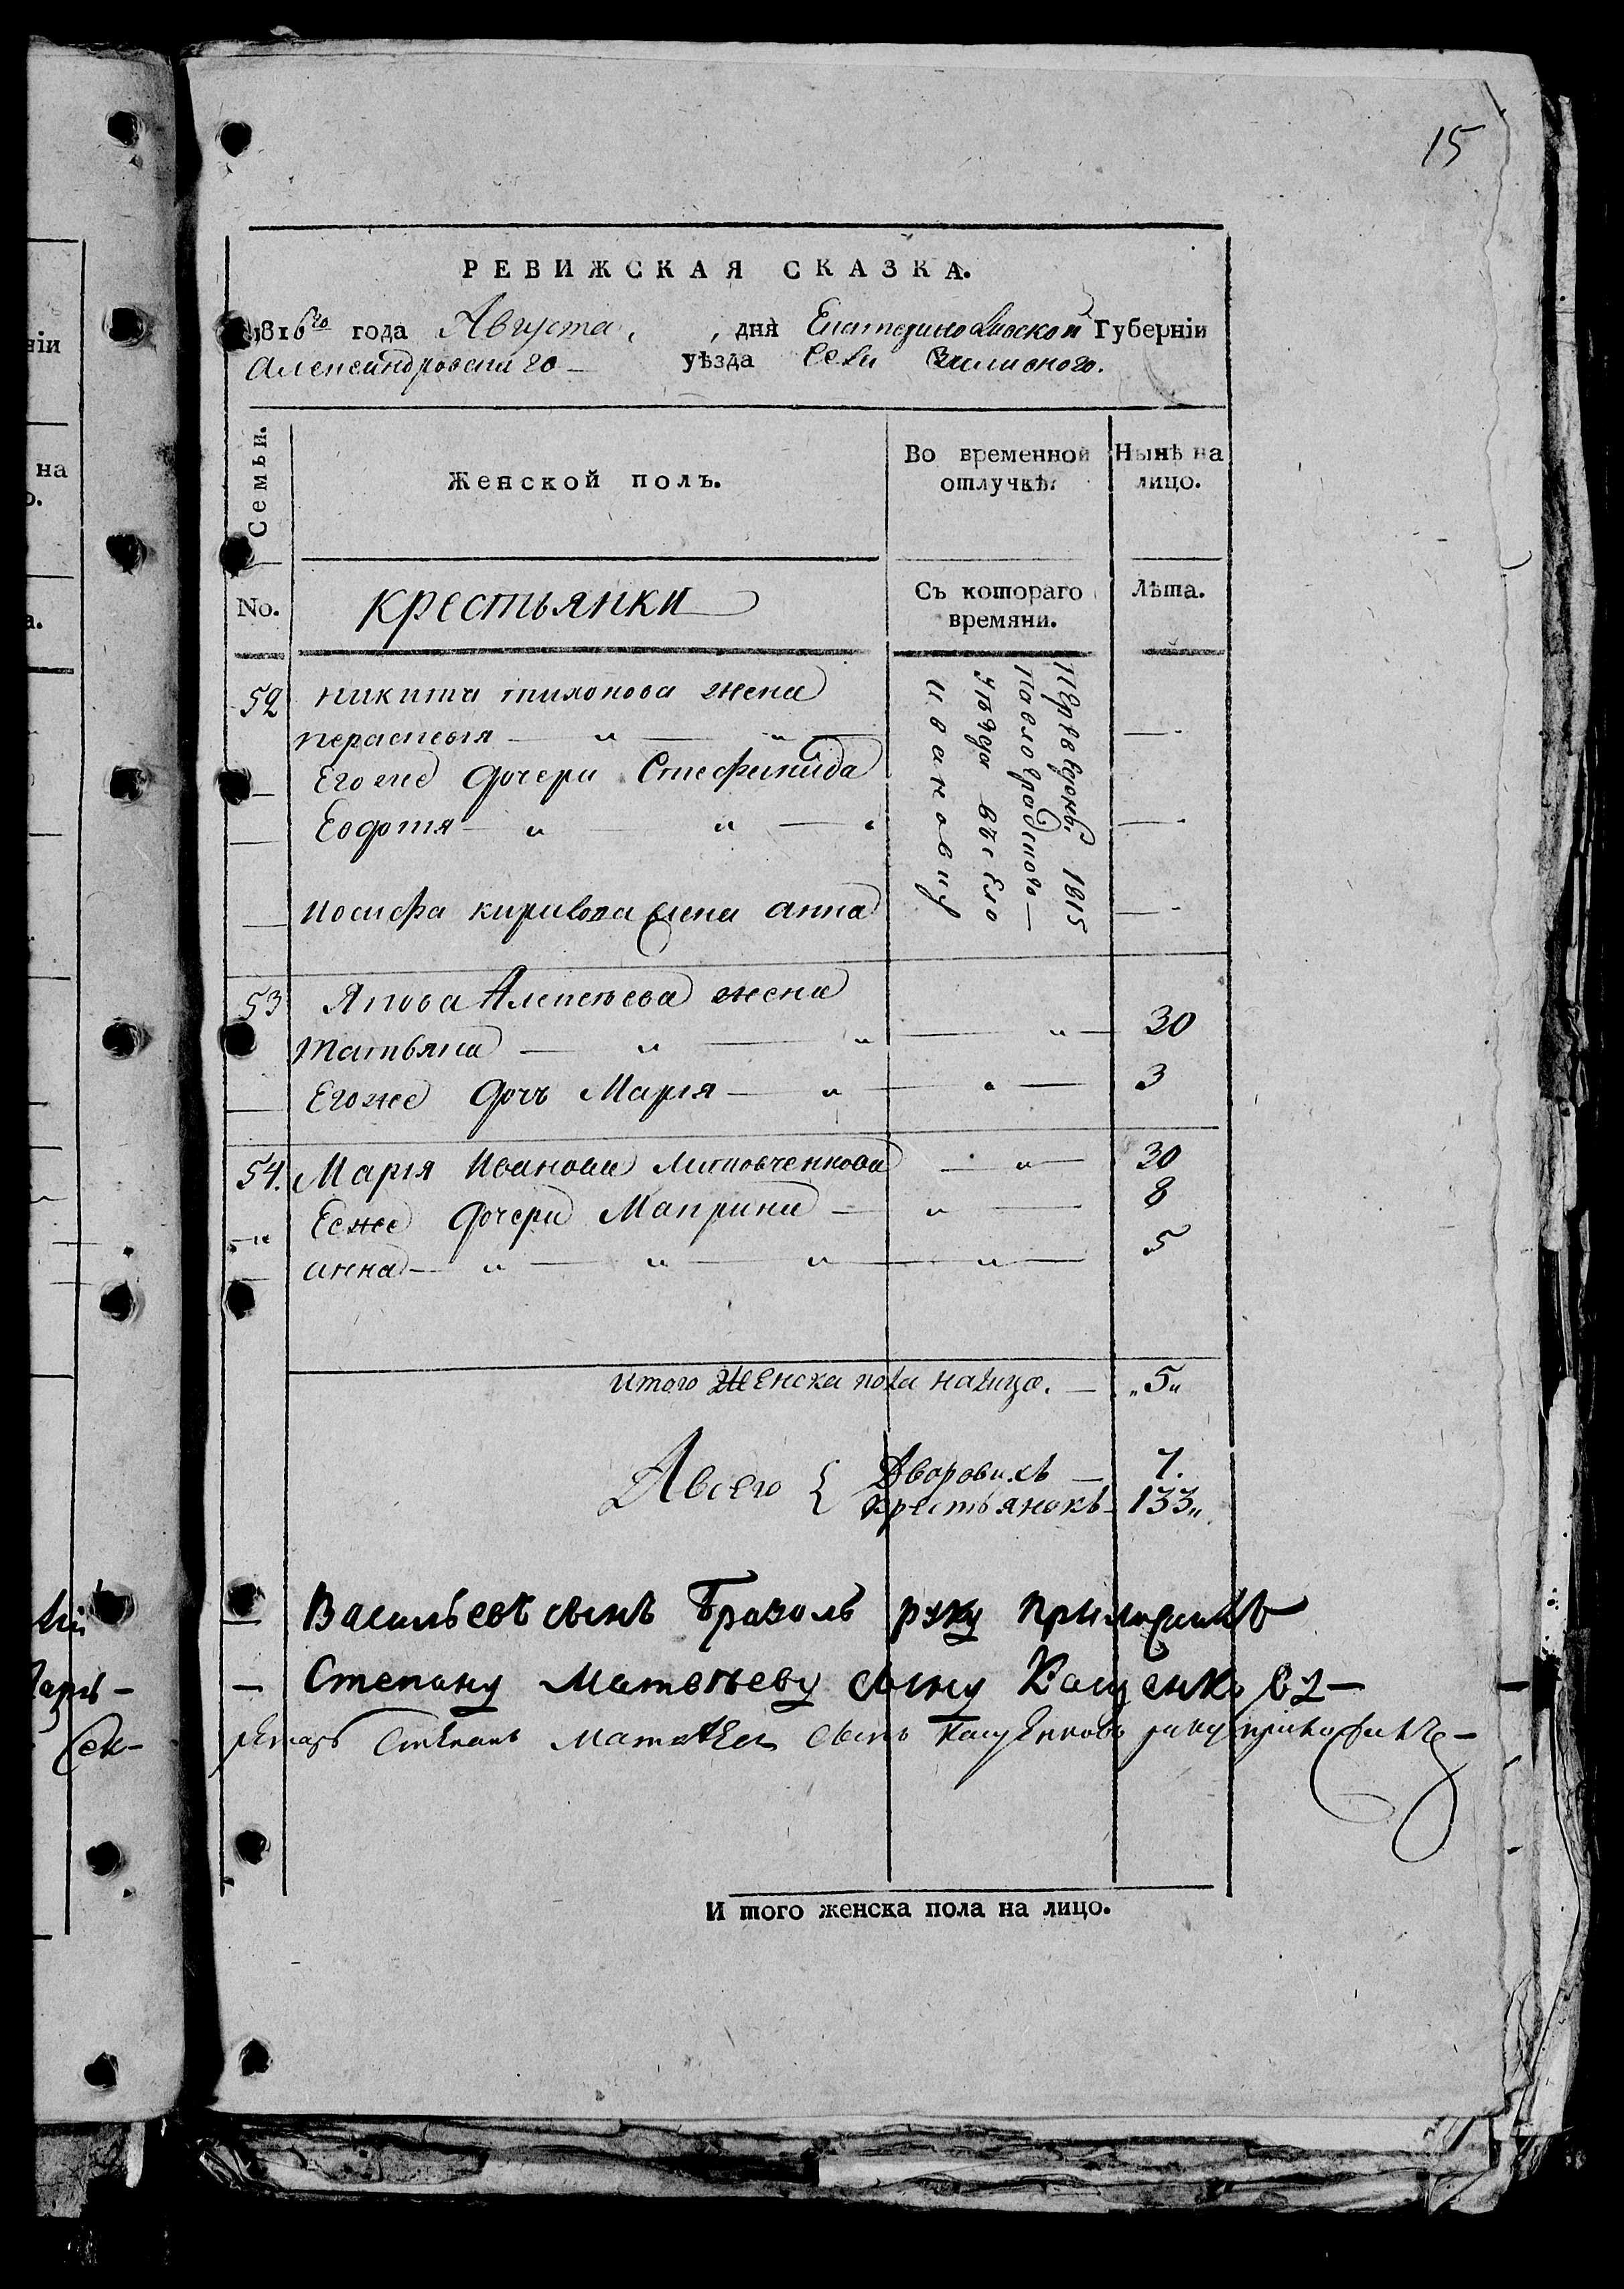 15
РЕВИЖСКАЯ СКАЗКА.
1816го года Августа, , дня Екатеринославской Губерніи
Александровскаго уѣзда Села
Семьи.
Женской полъ.
Во временной отлучкѣ.
Нынѣ на лицо.
No.
крестьянки
Съ котораго времяни.
Лѣта.
52 никиты тихонова жена
параскевія — " — " —
Егоже дочери Стефанида
Евдотія — " — " —
иосифа кирилова жена анна
1815
Павлоградскаго
уѣзда въ село
ивановку
53 Якова Алексѣева жена
татьяна — " — " — " — 30
Егоже дочь Марія — " — " — 3
54. Марія Иванова Литовченкова — " — 30
Еяже дочери Матрина — " — 8
анна — " — " — " — " — 5
итого женска пола налицо. — „5„
Авсего { Дворовыхъ — 7.
крестьянокъ — 133„
Васильевъ сынъ Бразоль руку приложилъ
— Степану Матвѣеву сыну
Степанъ сынъ руку
И того женска пола на лицо.